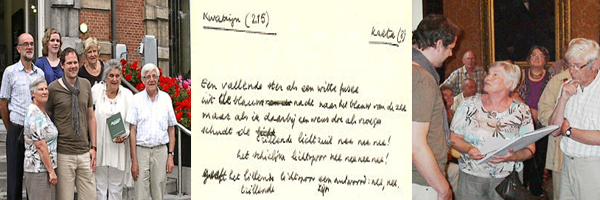 Kwatrijn (215)
Kreta (3)
Een vallende ster als een witte fusee
uit het blauw naar het blauw van de zee
maar als ik daarbij een wens doe als vroeger
schudt de
trillende lichtzuil nee nee nee!
het lichtspoor nee nee nee nee!
Geeft het lichtspoor een antwoord: nee, nee.
trillende zijn